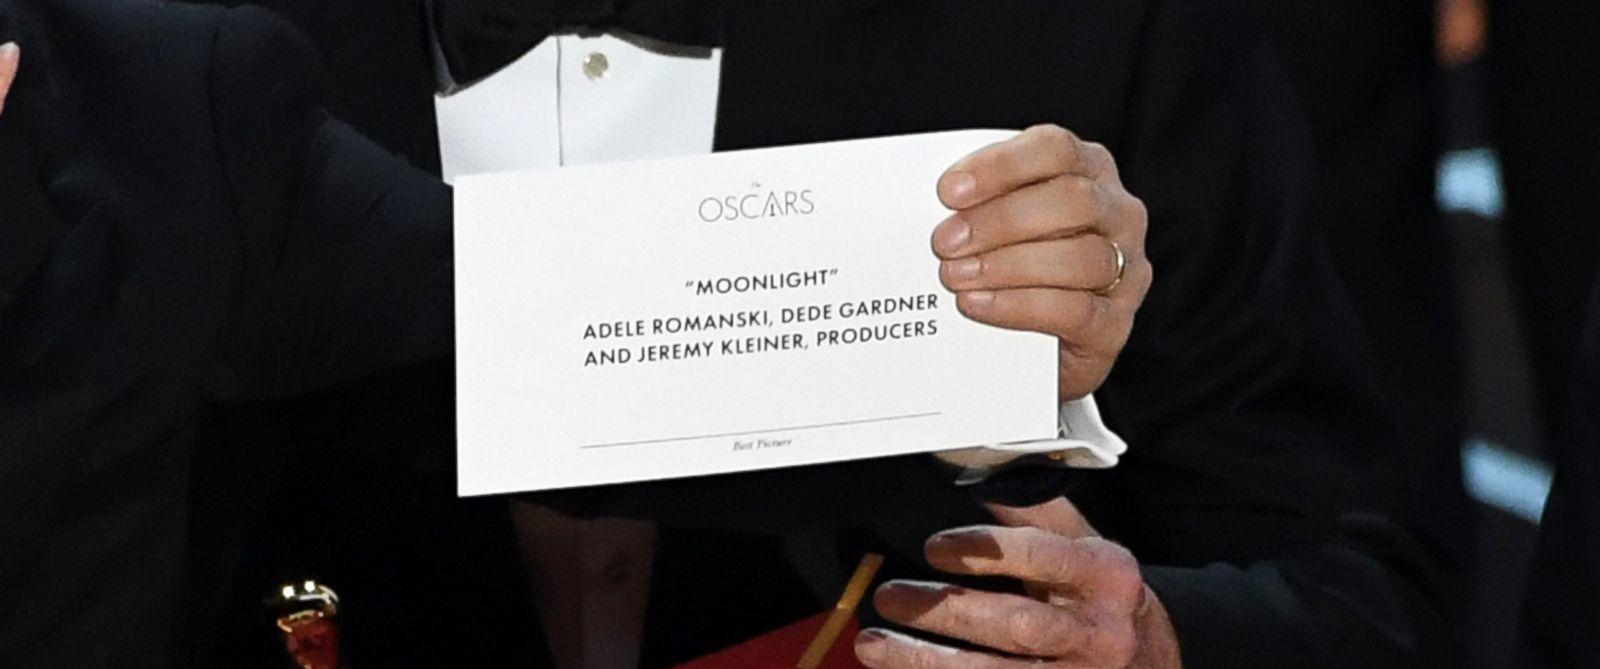 The
OSCARS
“MOONLIGHT”
ADELE ROMANSKI, DEDE GARDNER
AND JEREMY KLEINER, PRODUCERS
Best Picture